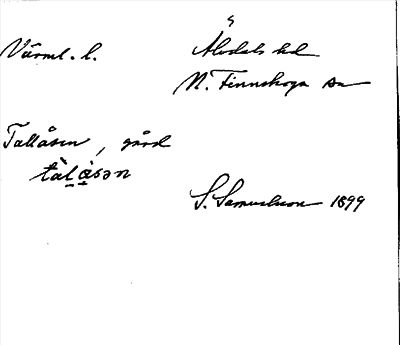 Värml. l.
Älvdals hd
N. Finnskoga sn
Tallåsen, gård
tàlåsən
S. Samuelsson 1899